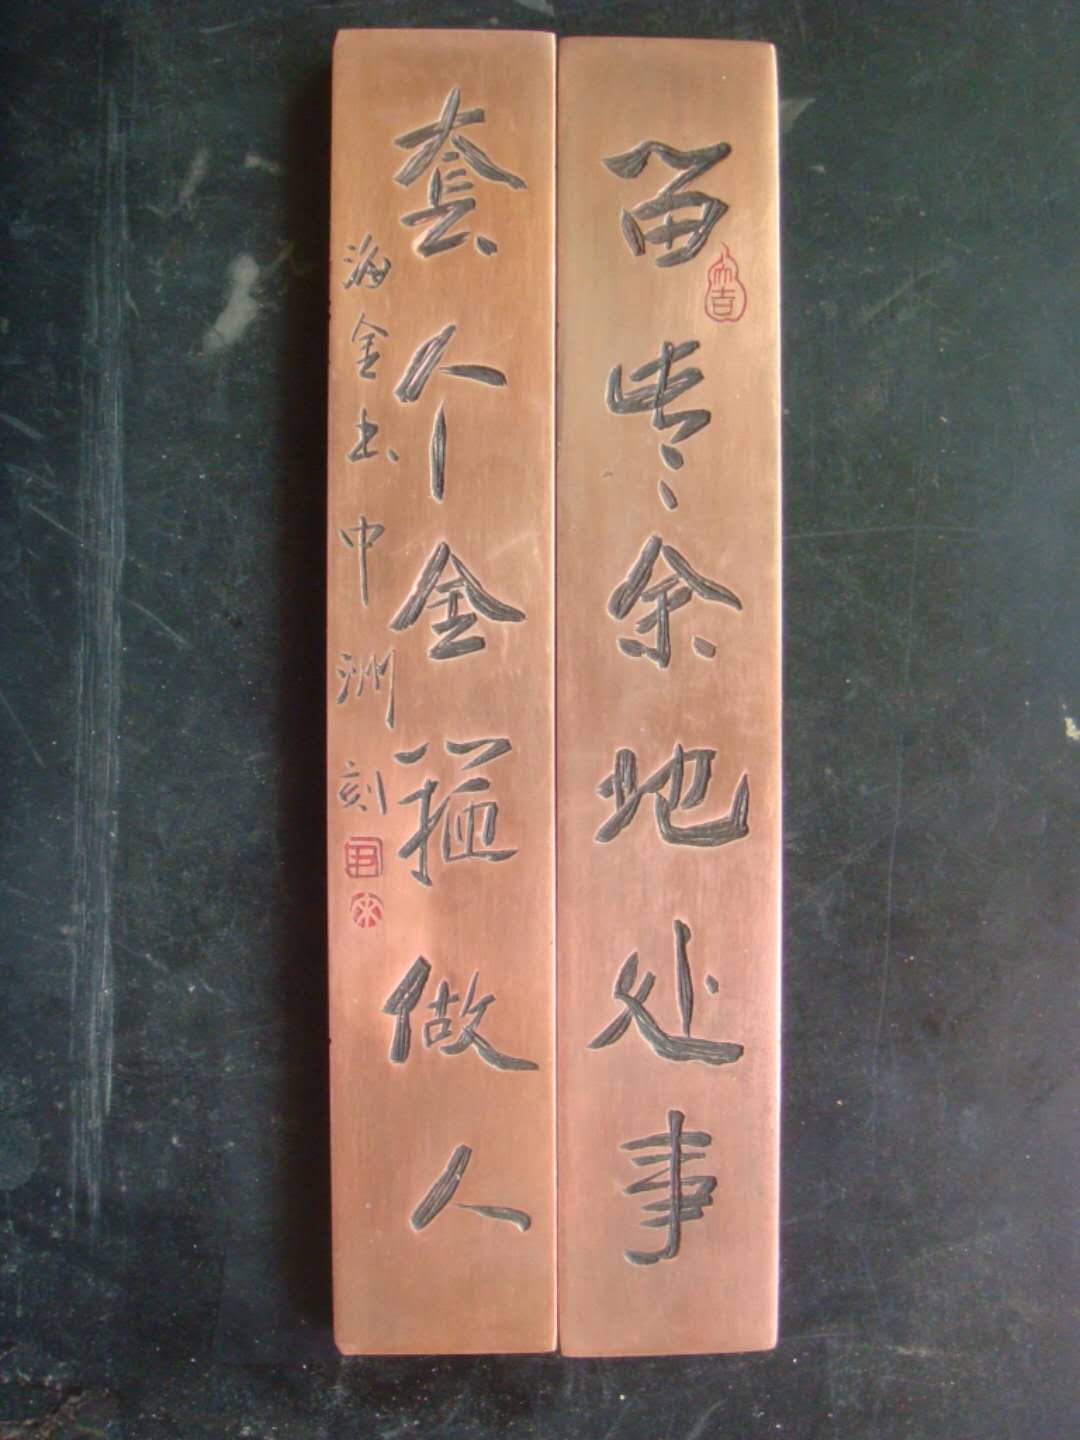 留些余地处事
大吉
套个金箍做人
海金书中洲刻